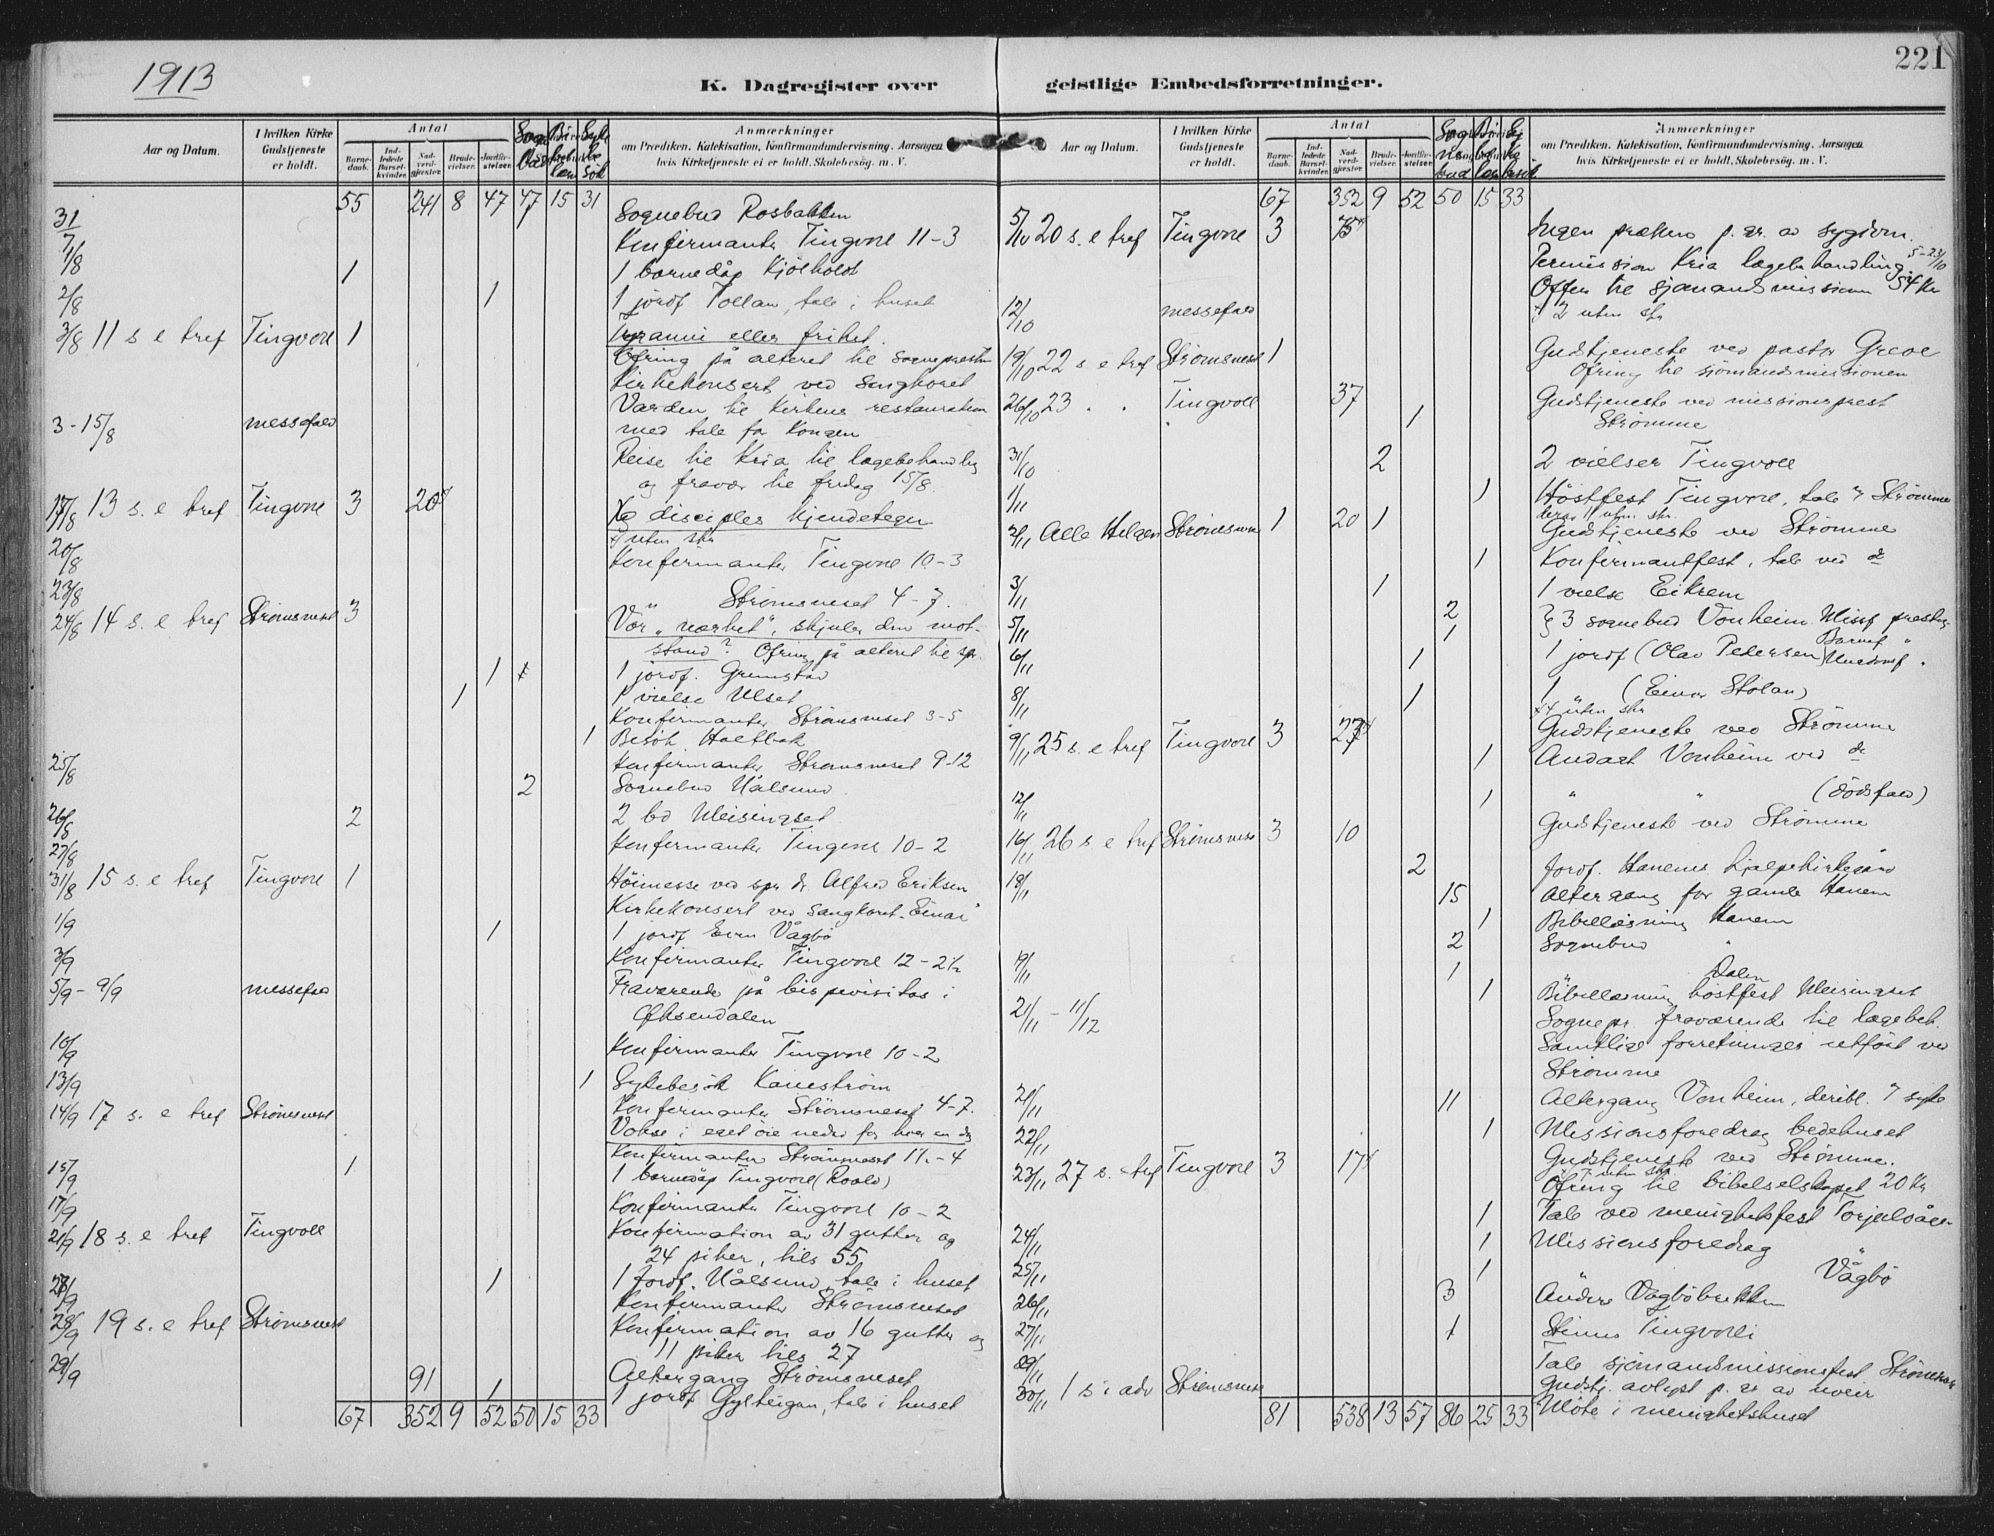 1913
221
K. Dagregister over geistlige Embedsforretninger.
Aar og Datum.
I hvilken Kirke Gudstjeneste er holdt.
Antal
Barne-daab. Ind-ledede Barsel-kvinder. Nad-verd-gjæster. Brude-vielser. Jordfæ-stelser.
Anmærkninger
om Prædiken. Katekisation, Konfirmandundervisning. Aarsagen
hvis Kirketjeneste ei er holdt. Skolebesøg. m. V.
55 241 8 47 47 15 31
31/7 Sognebud Rosbakken
1/8 Konfirmanter Tingvoll 11-3
1 1 barnedåp Kjölholdt
2/8 1 1 jordf Tollan, tale i huset
3/8 11 s e tref Tingvoll 1 Tyranni eller frihet.
Ofring på alteret til sognepresten
Kirkekonsert ved sangkoret
Varden til Kirkens restauration
3-15/8 messefald med tale for Kongen
Reise til Kria til lægebehandling
og fravær til fredag 15/8.
17/8 13 s. e tref Tingvoll 3 20 disciples kjendetegn
uten skr
20/8 Konfirmanter Tingvoll 10-3
23/8 " Strömsneset 4-7.
24/8 14 s. e tref Strömsneset 3 Vor "nærhet", skjuler den mot-
stand? Ofring på alteret til spr.
1 1 jordf. Grimstad
1 1 vielse Ulset
Konfirmanter Strömsneset 3-5
1 Besök Holtbak
25/8 Konfirmanter Strömsneset 9-12
2 Sognebud Uålsund
26/8 2 2 bd Meisingset
27/8 Konfirmanter Tingvoll 10-2
31/8 15 s. e tref Tingvoll 1 Höimesse ved spr dr. Alfred Eriksen
Kirkekonsert ved sangkoret
1/9 1 1 jordf Vågbö
3/9 Konfirmanter Tingvoll 12-2½
5/9-9/9 messefald Fraværende på bispevisitas i
Öksendalen
10/9 Konfirmanter Tingvoll 10-2
13/9 1 Sykebesök Kaneström
Konfirmanter Strömsneset 4-7.
14/9 17 s. e tref Strömsneset Vokse i eget öie neder for
Konfirmanter Strömsneset 1½-4
15/9 1 1 barnedåp Tingvoll (Roald)
17/9 Konfirmanter Tingvoll 10-2
21/9 18 s. e tref Tingvoll Konfirmation av 31 gutter og
24 piker, tils 55
1 1 Jordf. Uålsund, tale i huset
Konfirmanter Strömsneset
28/9 19 s. e tref Strömsneset Konfirmation av 16 gutter og
11 piker tils 27
29/9 91 Altergang Strömsneset
1 1 jordf Gylteigan, tale i huset
67 352 9 52 50 15 33
Aar og Datum.
I hvilken Kirke Gudstjeneste er holdt.
Antal
Barne-daab. Ind-ledede Barsel-kvinder. Nad-verd-gjæster. Brude-vielser. Jordfæ-stelser.
Anmærkninger
om Prædiken. Katekisation, Konfirmandundervisning. Aarsagen
hvis Kirketjeneste ei er holdt. Skolebesøg. m. V.
67 352 9 52 50 15 33
5/10 20 s. e tref Tingvoll 3 Ingen præken p. gr. av sygdom.
Permission Kria lægebehandling 5-23/10
Offer til sjömandsmissionen 54 Kr
12/10 messefald 2 uten skr
19/10 22 s e tref Strömsneset 1 Gudstjeneste ved pastor Greve
Ofring til sjömandsmissionen
26/10 23 " " Tingvoll 37 Gudstjeneste ved missionsprest
1 Strömme
31/10 2 2 vielser Tingvoll
1/11 1 Höstfest Tingvoll, tale v Strömme
uten skr.
2/11 Alle Helgen Strömsnes 1 20 1 Gudstjeneste ved Strömme
1 Konfirmantfest, tale ved do
3/11 1 1 vielse Eikrem
5/11 2 1 3 sognebud Vonheim
6/11 1 1 jordf (Olav Pedersen)
8/11 1 1 " (Einar Stolan)
4 uten skr
9/11 25 s. e tref Tingvoll 3 27 Gudstjeneste ved Strömme
1 Andagt Vonheim ved do
12/11 1 " " (dödsfald)
16/11 26 s e tref Strömsnes 3 10 Gudstjeneste ved Strömme
18/11 2 Jordf. Hanems hjælpekirkegård
15 Altergang for gamle Hanem
1 Bibellæsning Hanem
2 Sognebud "
19/11 1 Dalen
1 Bibellæsning höstfest Meisingset
21/11-11/12 Sognepr. fraværende til lægebeh.
Samtlige forretninger utfört ved
Strömme
21/11 11 Altergang Vonheim, deribl. 7 syke
22/11 1 Missionsforedrag bedehuset
23/11 27 s. e tref Tingvoll 3 17 Gudstjeneste ved Strömme.
uten skr.
Ofring til bibelselskapet 20 Kr
1 Tale ved menighetsfest Torjulvågen
24/11 1 Missionsforedrag "
25/11 1 Vågbö
26/11 3 Vågböbrekken
27/11 1 Tingvoll
29/11 Tale sjömandsmissionsfest Strömsnes
30/11 1 s i adv Strömsnes Gudstj. avlyst p. gr. av uveir
81 538 13 57 86 25 33 Möte i menighetshuset